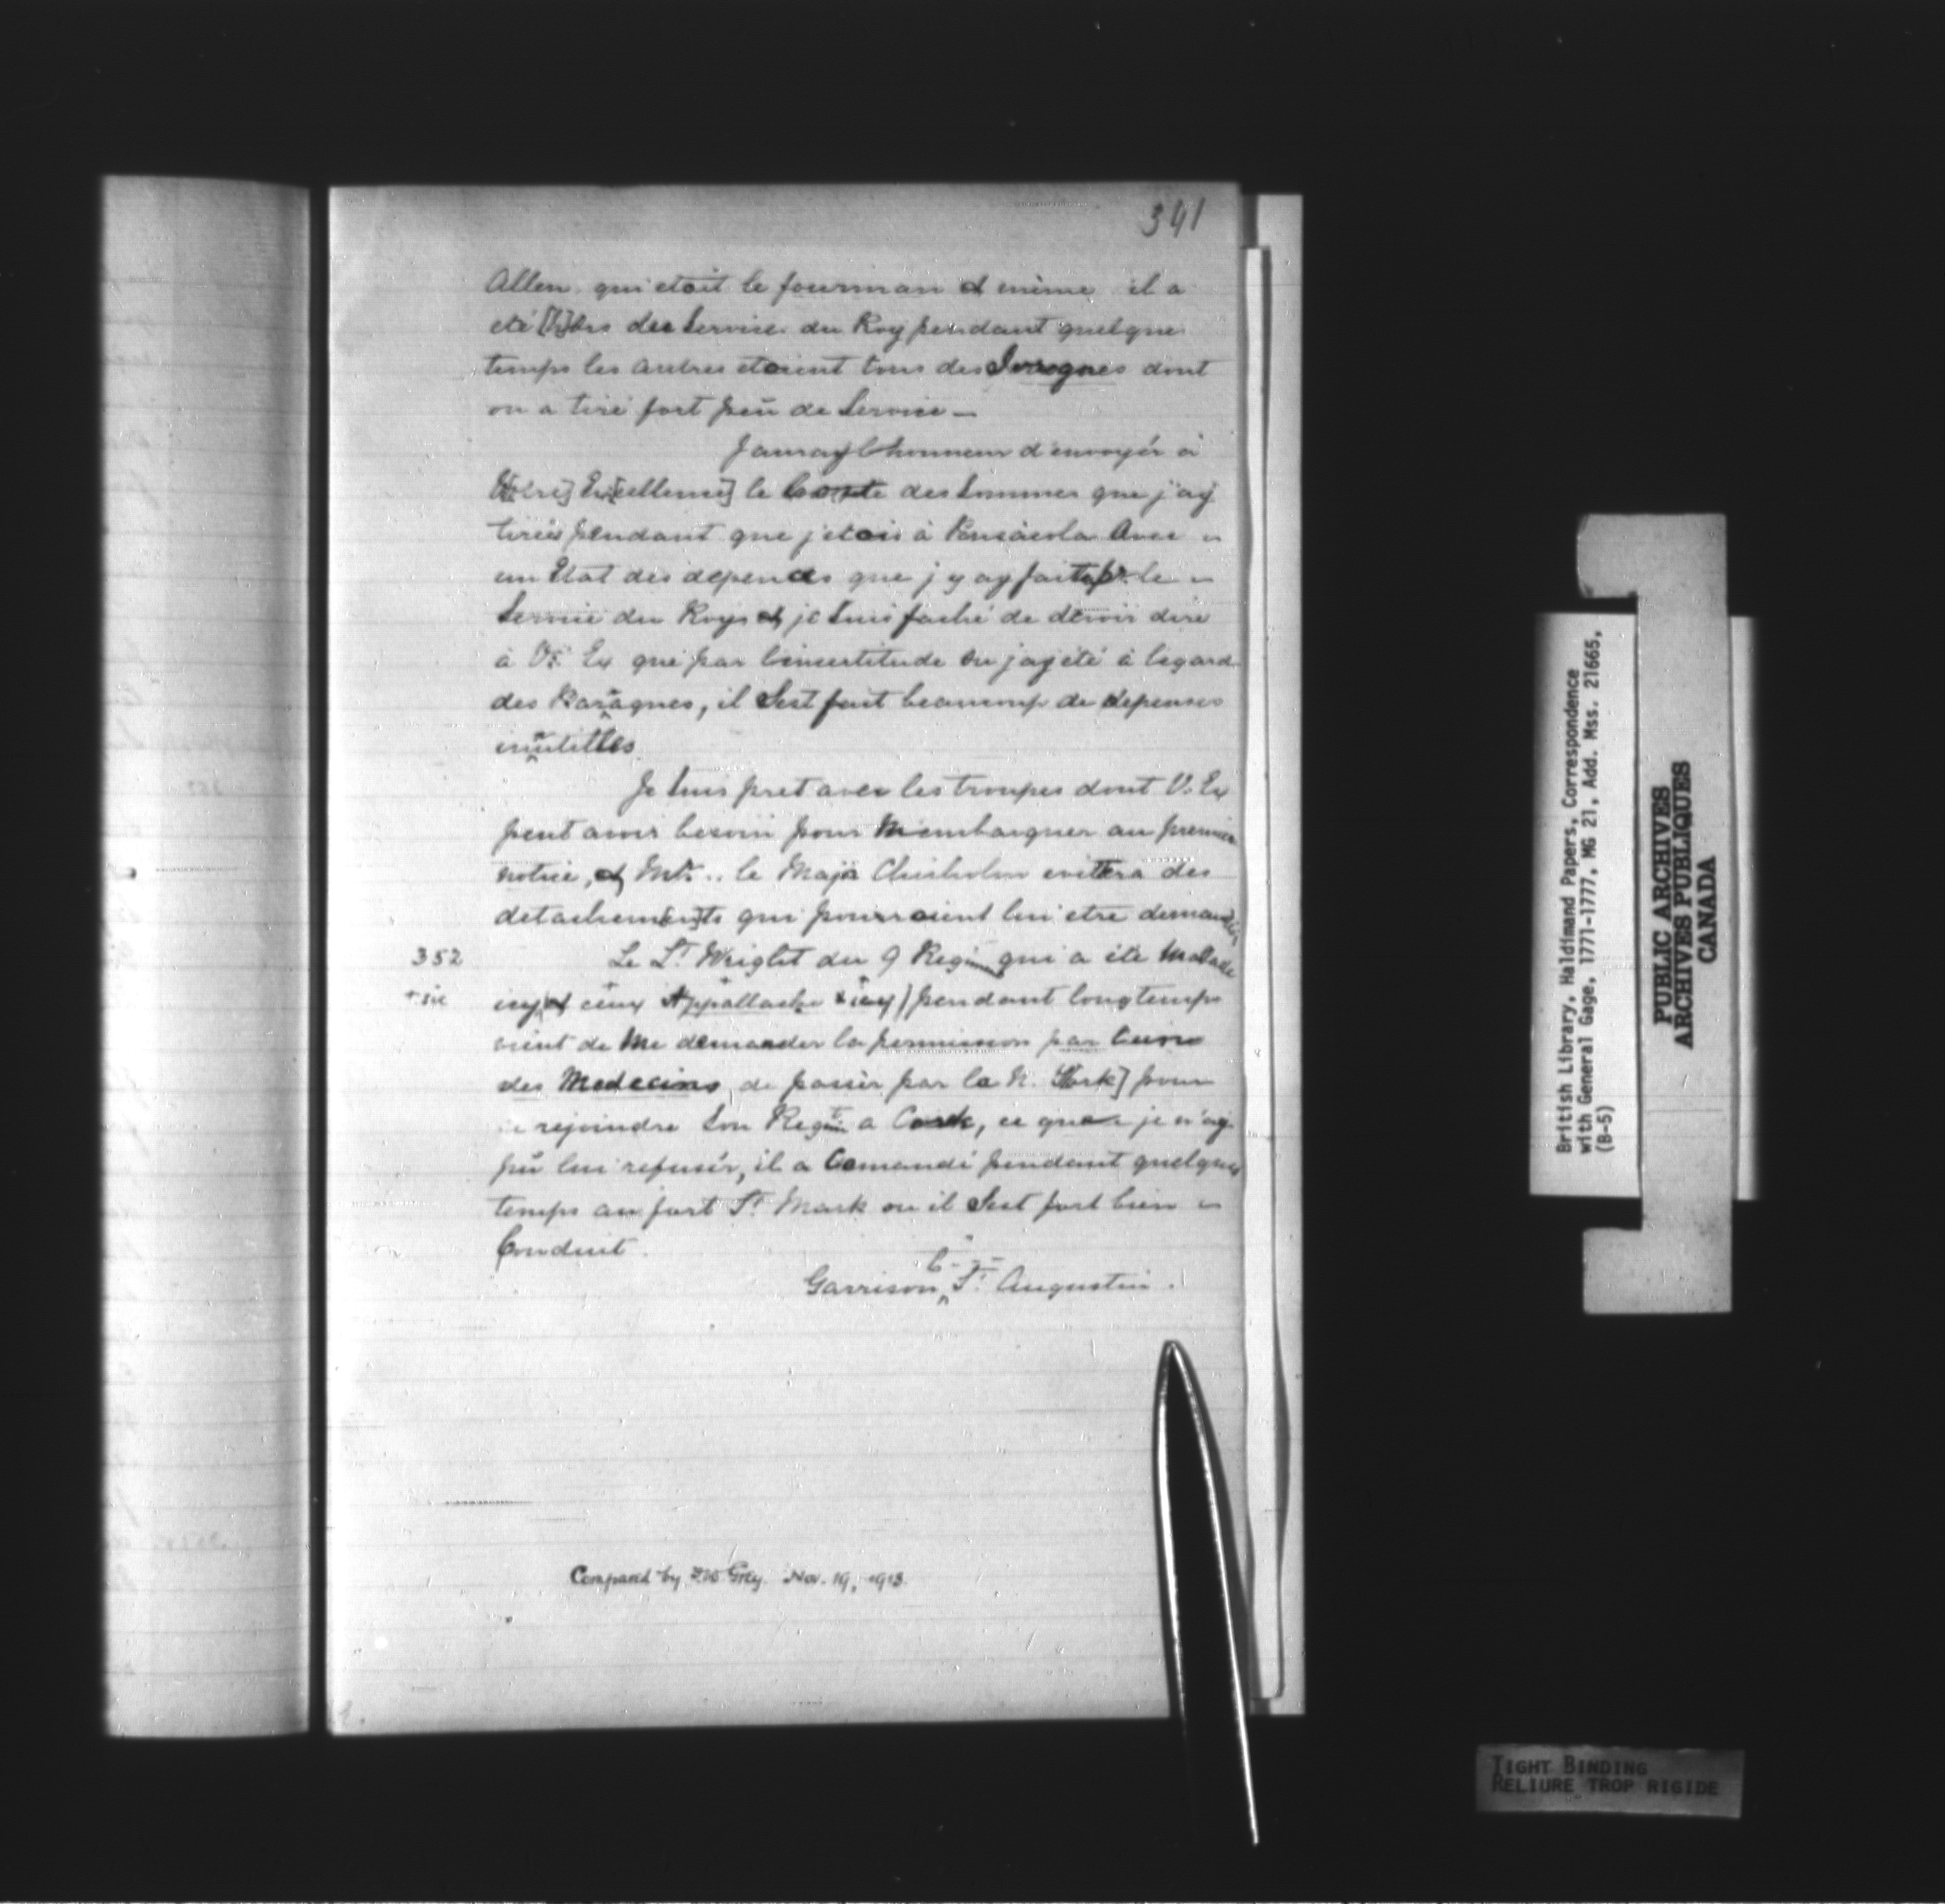 341
Allen qui etoit le fourman & même il a
eté [h]ors des Service du Roy pendant quelque
temps les autres etoient tous des Ivrognes dont
on a tiré fort peü de Service —
J'auray l'honneur d'envoyér à
V[otre] Ex[cellence] le Conte des Sommes que j'ay
tirées pendant que j'etois à Pensacola Avec
un Etat des depences que j'y ay faites pr. le
Service du Roy & je Suis faché de devoir dire
à Ve. Ex que par l'incertitude ou j'ay été à l'egard
des Baraques, il S'est fait beaucoup de depenses
inutilles
Je Suis pret avec les troupes dont V. Ex
peut avoir besoin pour M'embarquer au premier
notice, & Mr. le Majr Chisholm evittera des
detachem[en]ts qui pourroient lui etre demandés
352
Le Lt. Wright du 9 Regim qui a été Malade
+ sic
icy & ceux Appallache + icy) pendant longtemps
vient de Me demander la permission par
des Medecins de passer par la N. York] pour
rejoindre Son Regt. a Cork, ce que je n'ay
pü lui refusér, il a Comandé pendant quelque
temps au fort St. Mark ou il S'est fort bien
Conduit.
Garrison St. Augustin.
Compared by F.W. Grey. Nov. 19, 1913.
British Library, Haldimand Papers, Correspondence
with General Gage, 1771-1777, MG 21, Add. Mss. 21665,
(B-5)
PUBLIC ARCHIVES
ARCHIVES PUBLIQUES
CANADA
TIGHT BINDING
RELIURE TROP RIGIDE